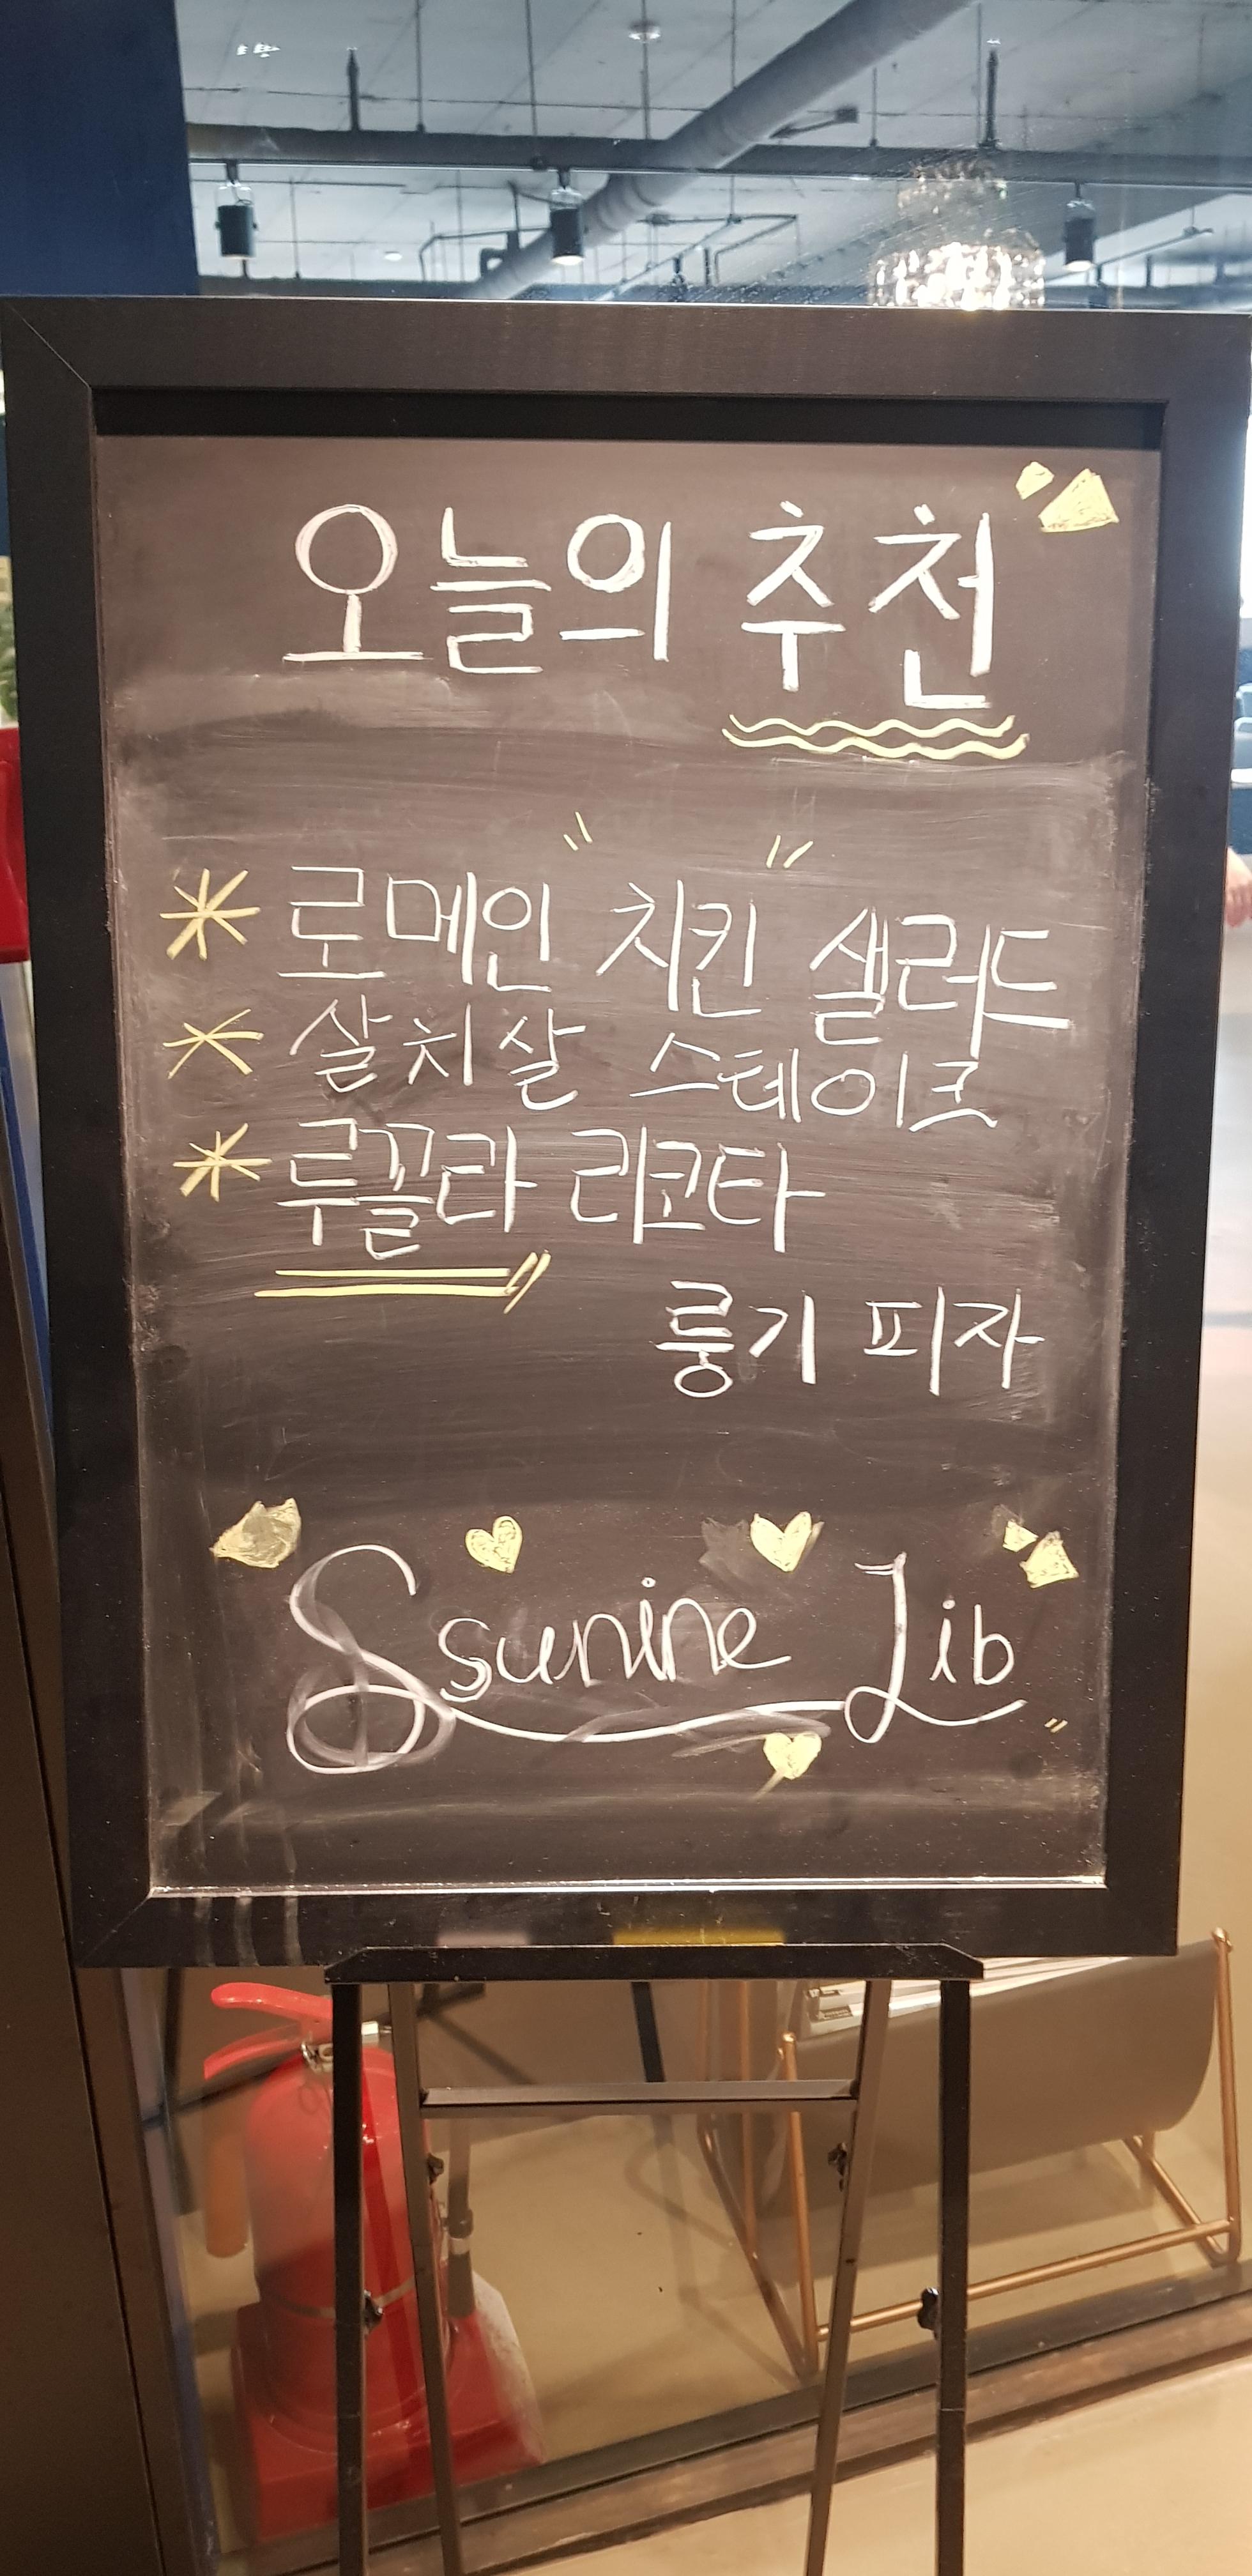 오늘의 추천
로메인 치킨 샐러드
살치살 스테이크
루꼴라 리코타
룽기 피자
Ssunine Lib